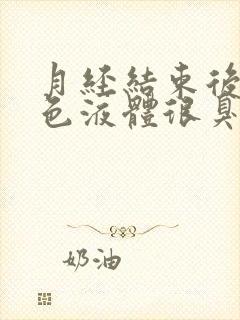 月經結束後
色液體很臭
奶油